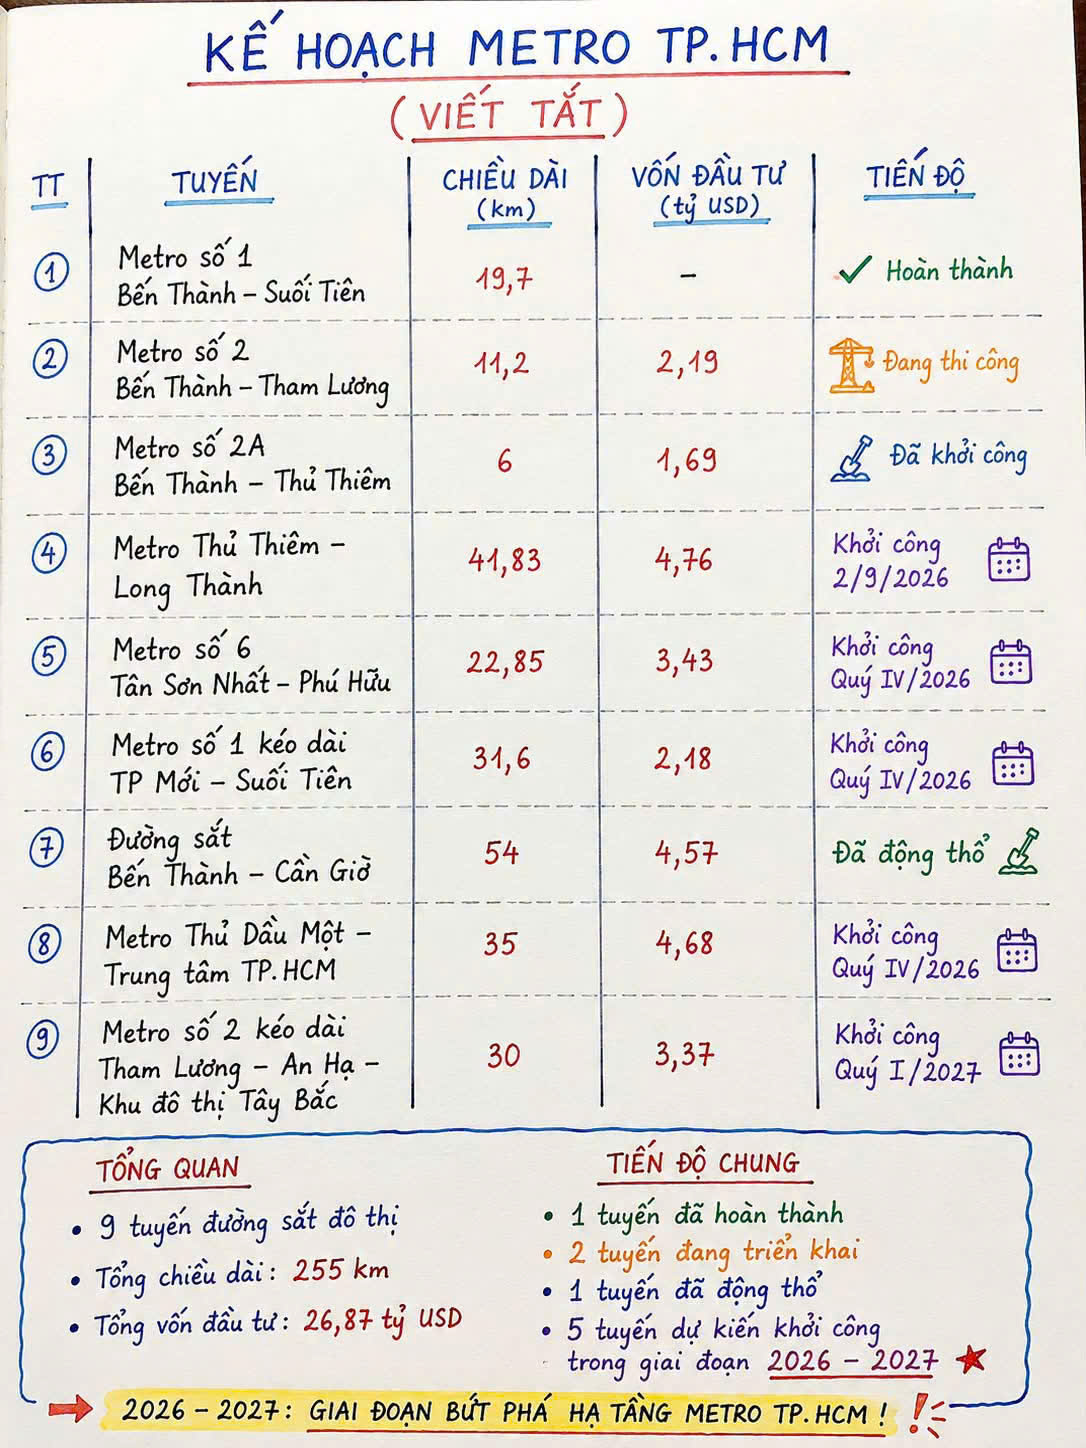 KẾ HOẠCH METRO TP.HCM
(VIẾT TẮT)
TT TUYẾN CHIỀU DÀI (km) VỐN ĐẦU TƯ (tỷ USD) TIẾN ĐỘ
1 Metro số 1 19,7 – Hoàn thành
Bến Thành – Suối Tiên
2 Metro số 2 11,2 2,19 Đang thi công
Bến Thành – Tham Lương
3 Metro số 2A 6 1,69 Đã khởi công
Bến Thành – Thủ Thiêm
4 Metro Thủ Thiêm – 41,83 4,76 Khởi công
Long Thành 2/9/2026
5 Metro số 6 22,85 3,43 Khởi công
Tân Sơn Nhất – Phú Hữu Quý IV/2026
6 Metro số 1 kéo dài 31,6 2,18 Khởi công
TP Mới – Suối Tiên Quý IV/2026
7 Đường sắt 54 4,57 Đã động thổ
Bến Thành – Cần Giờ
8 Metro Thủ Dầu Một – 35 4,68 Khởi công
Trung tâm TP.HCM Quý IV/2026
9 Metro số 2 kéo dài 30 3,37 Khởi công
Tham Lương – An Hạ – Quý I/2027
Khu đô thị Tây Bắc
TỔNG QUAN
• 9 tuyến đường sắt đô thị
• Tổng chiều dài: 255 km
• Tổng vốn đầu tư: 26,87 tỷ USD
TIẾN ĐỘ CHUNG
• 1 tuyến đã hoàn thành
• 2 tuyến đang triển khai
• 1 tuyến đã động thổ
• 5 tuyến dự kiến khởi công
trong giai đoạn 2026 – 2027
2026 – 2027: GIAI ĐOẠN BỨT PHÁ HẠ TẦNG METRO TP.HCM!